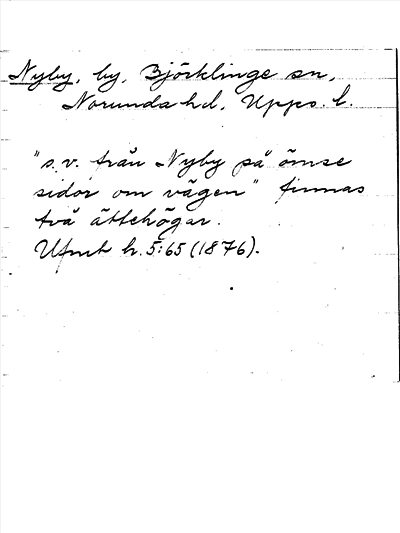 Nyby, by, Björklinge sn,
Norunda hd, Upps. l.
"s.v. från Nyby på ömse
sidor om vägen" finnas
två ättehögar.
Ufmt h. 5:65 (1876).